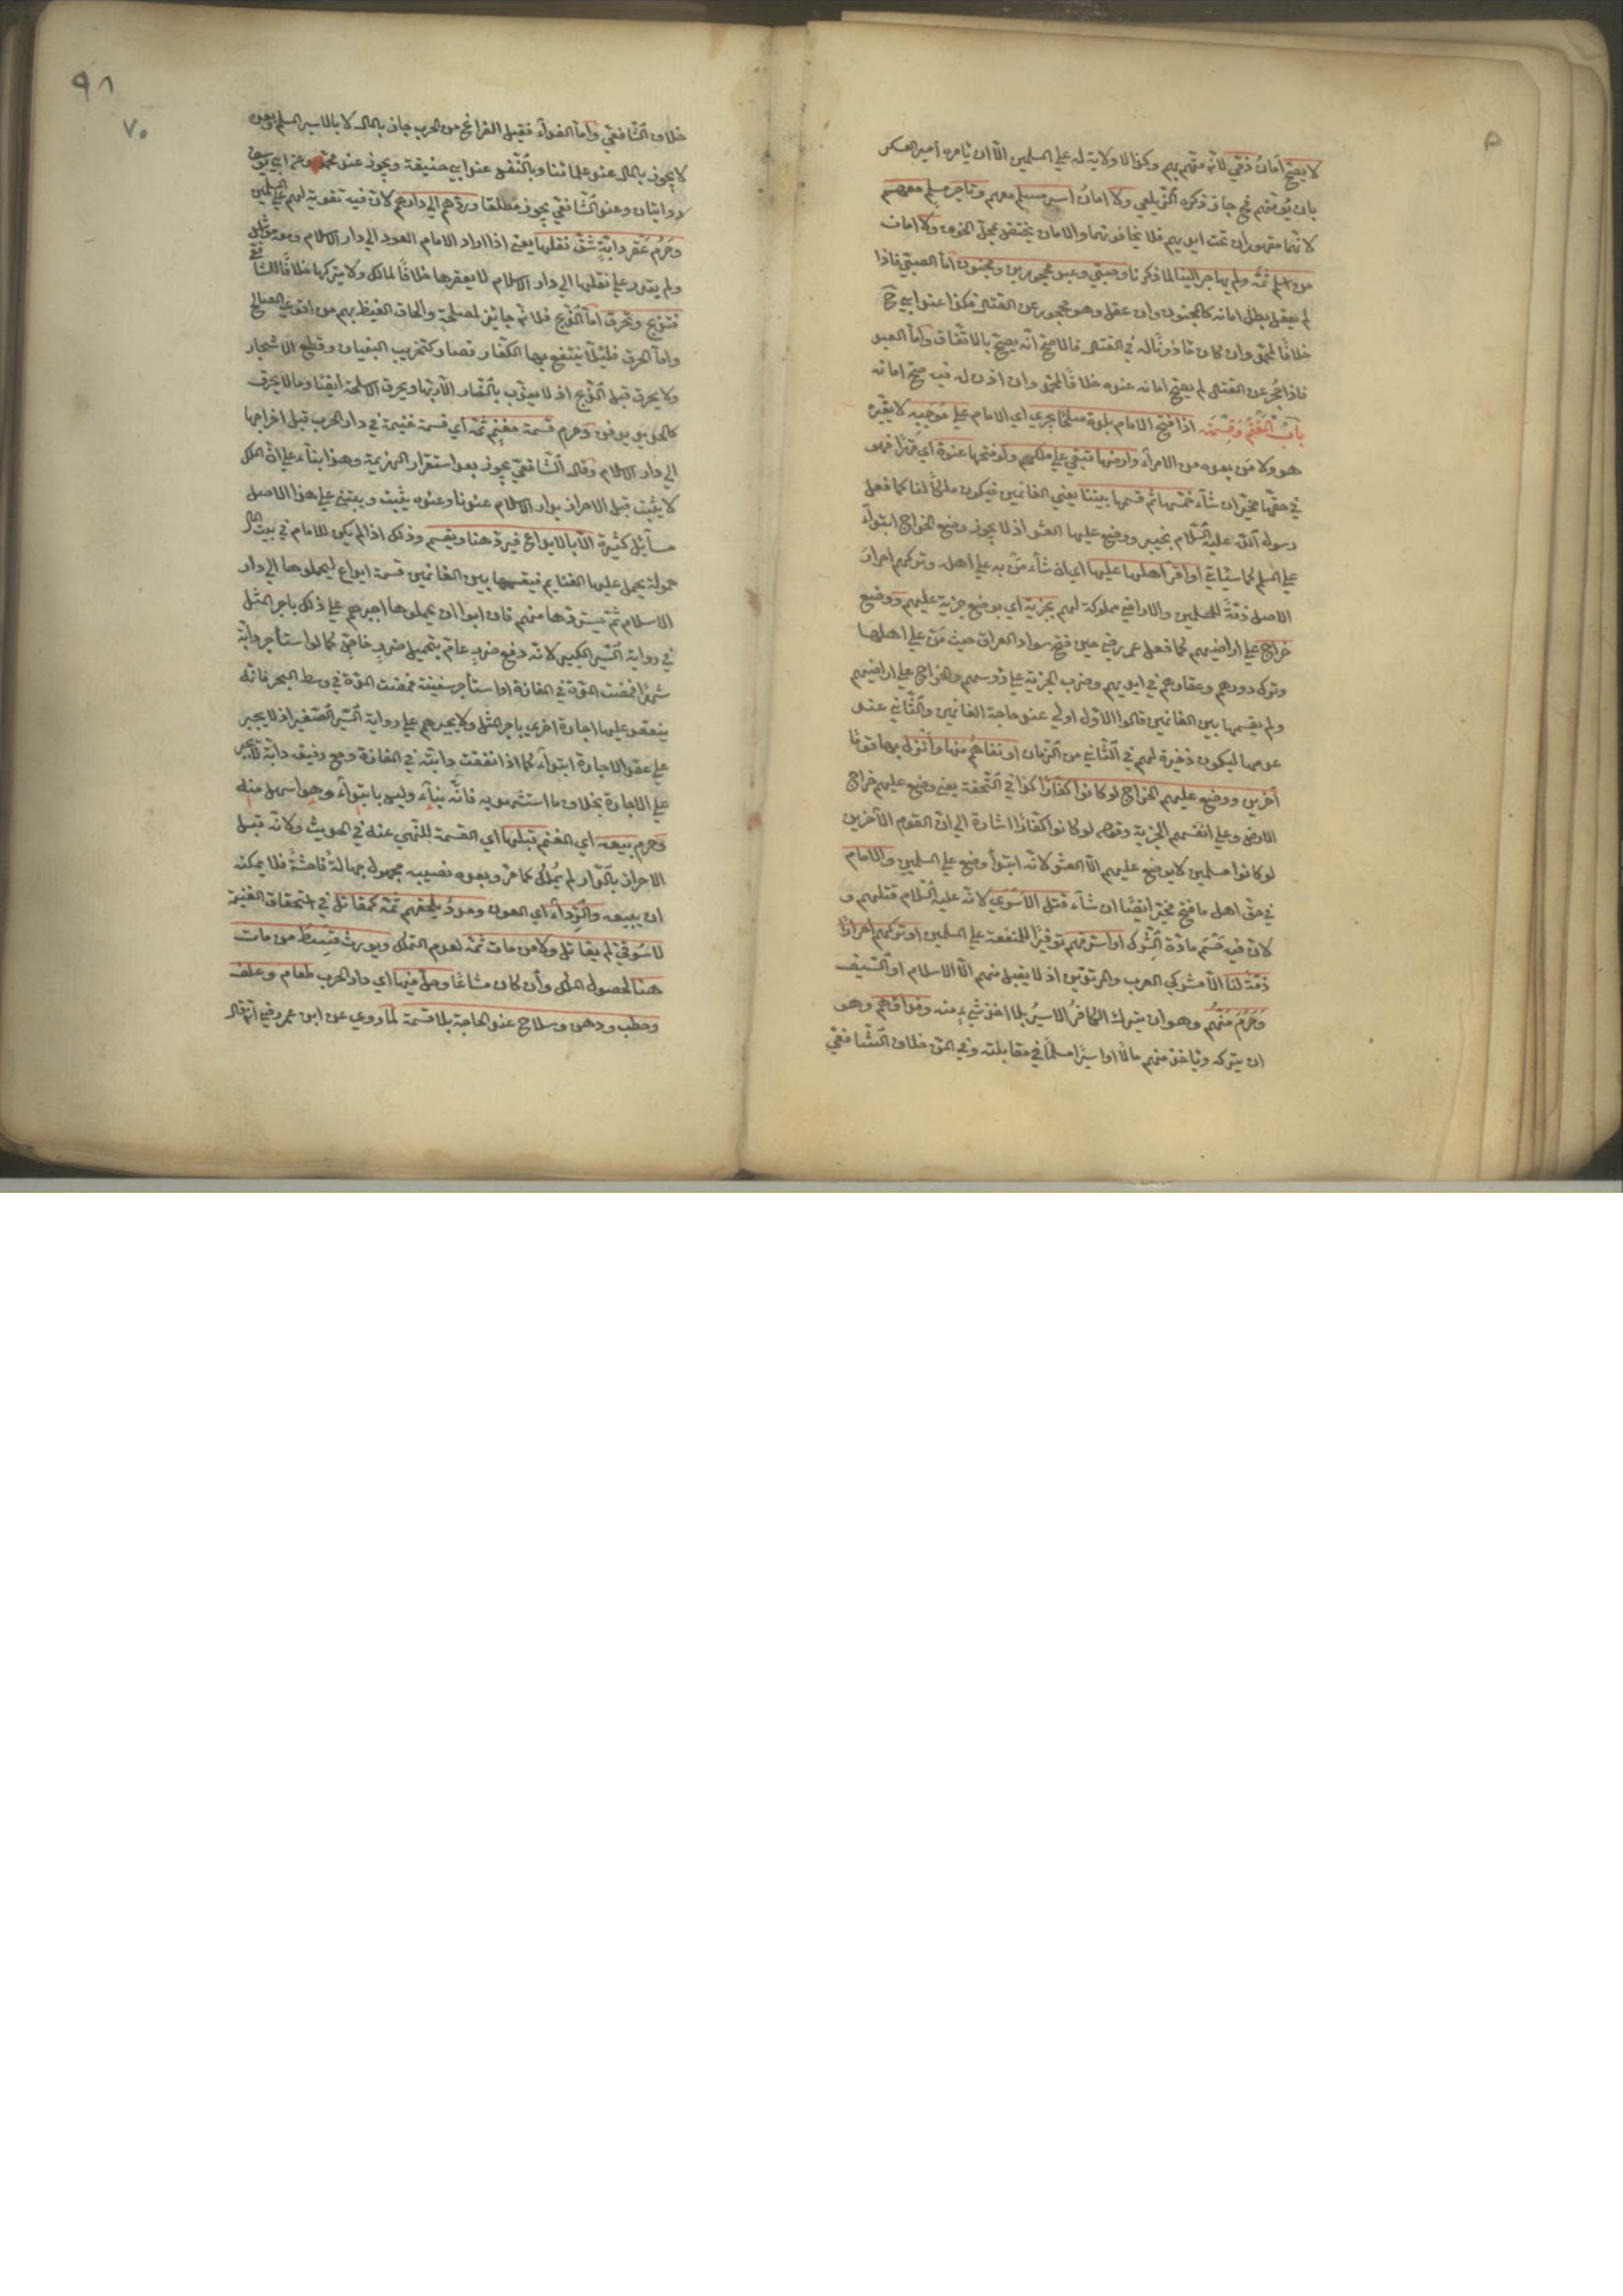 لا يصح أمان ذمي لأنه متهم بهم وكذا لا ولاية له على المسلمين الا ان يأمره امير العسكر
بان يؤمنهم فح جاز ذكره الزيلعي ولا امان اسير مسلم معهم وتاجر مسلم معهم
لانهما مقهوران تحت ايديهم فلا يخافونهما والامان يختص بمحل الخوف ولا امان
من اسلم ثمه ولم يهاجر الينا لما ذكرنا وصبي وعبد محجورين ومجنون اما الصبي فاذا
لم يعقل بطل امانه كالمجنون وان عقل وهو محجور عن القتال فكذا عند ابي ح
خلافا لمحمد وان كان مأذونا له في القتال فالاصح انه يصح بالاتفاق واما العبد
فاذا حجر عن القتال لم يصح امانه عنده خلافا لمحمد وان اذن له فيه صح امانه
باب المغنم وقسمته اذا فتح الامام بلدة صلحا يجري اي الامام على موجبه لا يغيره
هو ولا من بعده من الامراء وارضها تبقى على ملكهم ولو فتحها عنوة اي قهرا فهو
في حقها مخير ان شاء خمسها ثم قسمها بيننا يعني الغانمين فيكون ملكا لنا كما فعل
رسول الله عليه السلام بخيبر ووضع عليها العشر اذ لا يجوز وضع الخراج ابتداء
على المسلم كما سيأتي او اقر اهلها عليها اي ان شاء من به على اهله وتركهم احرار
الاصل ذمة للمسلمين والاراضي مملوكة لهم بجزية اي بوضع جزية عليهم ووضع
خراج على اراضيهم كما فعل عمر رضي حين فتح سواد العراق حيث من على اهلها
وترك دورهم وعقارهم في ايديهم وضرب الجزية على رؤسهم والخراج على اراضيهم
ولم يقسمها بين الغانمين قالوا الاول اولى عند حاجة الغانمين والثاني عند
عدمها ليكون ذخيرة لهم في الثاني من الزمان او نفاهم منها وانزل بها قوما
آخرين ووضع عليهم الخراج لو كانوا كفارا كذا في التحفة يعني وضع عليهم خراج
الارض وعلى انفسهم الجزية وقوله لو كانوا كفارا اشارة الى ان القوم الآخرين
لو كانوا مسلمين لا يوضع عليهم الا العشر لانه ابتداء وضع على المسلمين والامام
في حق اهل ما فتح مخير ايضا ان شاء قتل الاسرى لانه عليه السلام قتلهم و
لان فيه حسم مادة الشرك او استرقهم توفيرا للمنفعة على المسلمين او تركهم احرارا
ذمة لنا الا مشركي العرب والمرتدين اذ لا يقبل منهم الا الاسلام او السيف
وحرم منهم وهو ان يترك الكافر الاسير بلا اخذ شيء منه وفداؤهم وهو
ان يتركه ويأخذ منهم مالا او اسيرا مسلما في مقابلته وفي المن خلاف الشافعي
٩٨
٧٠
خلاف الشافعي واما الفداء فقبل الفراغ من الحرب جاز بالمال لا بالاسير المسلم وبعده
لا يجوز بالمال عند علمائنا وبالنفس عند ابي حنيفة ويجوز عند محمد وعن ابي يوسف
روايتان وعند الشافعي يجوز مطلقا وردهم الى دارهم لان فيه تقوية لهم على المسلمين
وحرم عقر دابة شق نقلها يعني اذا اراد الامام العود الى دار الاسلام ومعه مواش
ولم يقدر على نقلها الى دار الاسلام لا يعقرها خلافا لمالك ولا يتركها خلافا للشافعي
فتذبح وتحرق اما الذبح فلانه جائز لمصلحة والحاق الغيظ بهم من اقوى المصالح
واما الحرق فلئلا ينتفع بها الكفار فصار كتخريب البنيان وقطع الاشجار
ولا يحرق قبل الذبح اذ لا يعذب بالنار الا ربها ويحرق الاسلحة ايضا وما لا يحرق
كالحديد يدفن وحرم قسمة مغنم ثمه اي قسمة غنيمة في دار الحرب قبل اخراجها
الى دار الاسلام وقال الشافعي يجوز بعد استقرار الهزيمة وهذا بناء على ان الملك
لا يثبت قبل الاحراز بدار الاسلام عندنا وعنده يثبت ويبتنى على هذا الاصل
مسائل كثيرة الا بالايداع فيرد هنا ويقسم وذلك اذا لم يكن للامام في بيت المال
حمولة يحمل عليها الغنايم فيقسمها بين الغانمين قسمة ايداع ليحملوها الى دار
الاسلام ثم يستردها منهم فان ابوا ان يحملوها اجبرهم على ذلك باجر المثل
في رواية السير الكبير لانه دفع ضرر عام بتحميل ضرر خاص كما لو استأجر دابة
شهرا فمضت المدة في المفازة او استأجر سفينة فمضت المدة في وسط البحر فانه
ينعقد عليها اجارة اخرى باجر المثل ولا يجبرهم على رواية السير الصغير اذ لا يجبر
على عقد الاجارة ابتداء كما اذا نفقت دابته في المفازة ومع رفيقه دابة لا يجبر
على الاجارة بخلاف ما استشهد به فانه بناء وليس بابتداء وهو اسهل منه
وحرم بيعه اي المغنم قبلها اي القسمة للنهي عنه في الحديث ولانه قبل
الاحراز بالدار لم يملك كما مر وبعده نصيبه مجهول جهالة فاحشة فلا يمكنه
ان يبيعه والردء اي العون ومدد يلحقهم ثمه كمقاتل في استحقاق الغنيمة
لا سوقي لم يقاتل ولا من مات ثمه لعدم التملك ويورث قسط من مات
هنا لحصول الملك وان كان مشاعا وحل فيها اي دار الحرب طعام وعلف
وحطب ودهن وسلاح عند الحاجة بلا قسمة لما روي عن ابن عمر رضي انه قال